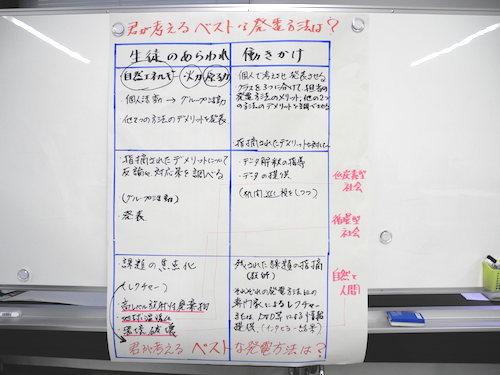 君が考える ベストな発電方法は?
生徒のあらわれ
自然エネルギー 火力 原子力
個人活動 → グループ活動
他2つの方法のデメリットを発表
・指摘されたデメリットについて
反論、対応策を調べる
(グループ活動)
・発表
課題の焦点化
(レクチャー)
・高レベル放射性廃棄物
・地球温暖化
・環境破壊
働きかけ
個人で考えさせ発表させる
クラスを3つに分けて、担当の
発電方法のメリット、他の2つ
の方法のデメリットを調べさせる
・データ解釈の指導
・データの提供
(机間巡視をしつつ)
残された課題の指摘
(教師)
それぞれの発電方法の
専門家によるレクチャー
または による情報
提供
低炭素型
社会
循環型
社会
自然と
人間
君が考える ベストな発電方法は?